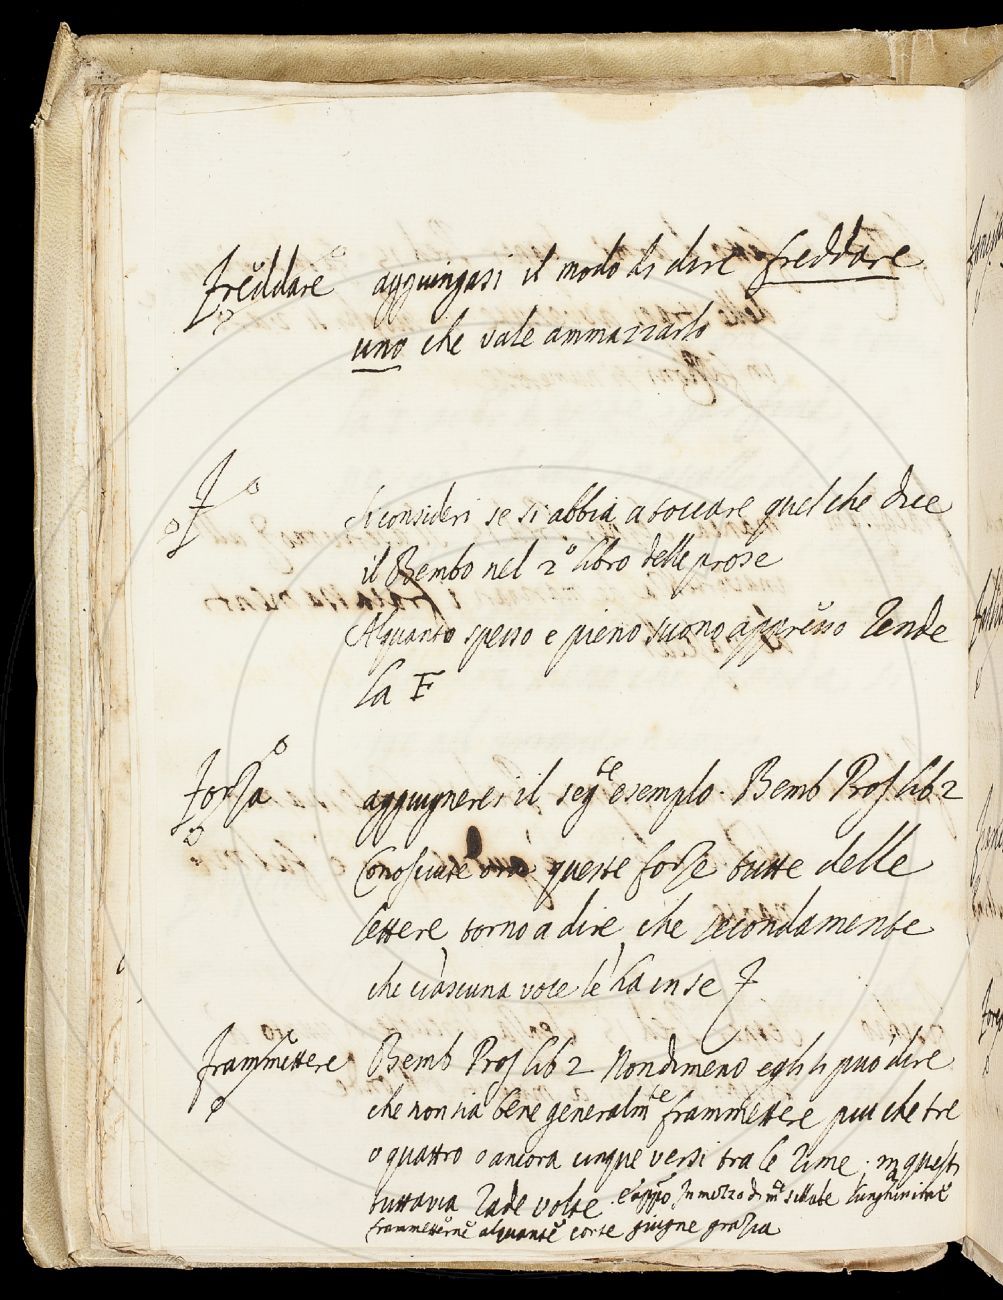 freddare aggiungasi il modo di dire freddare
uno che vale ammazzarlo
F Si consideri se si abbia a toccare quel che dice
il Bembo nel 2º libro delle prose
Alquanto spesso e pieno suono appresso rende
la F
forza aggiugnerei il segte esempio. Bemb Pros lib 2
Conosciute ora queste forze tutte delle
lettere torno a dire che secondamente
che ciascuna voce le ha in se
frammettere Bemb Pros lib 2 Nondimeno egli si può dire
che non sia bene generalmte frammettere piu che tre
o quattro o ancora cinque versi tra le rime. ma questi
tuttavia rade volte e appo In mezzo di mte sillabe lunghissime
frammetterne alquante corte giugne grazia